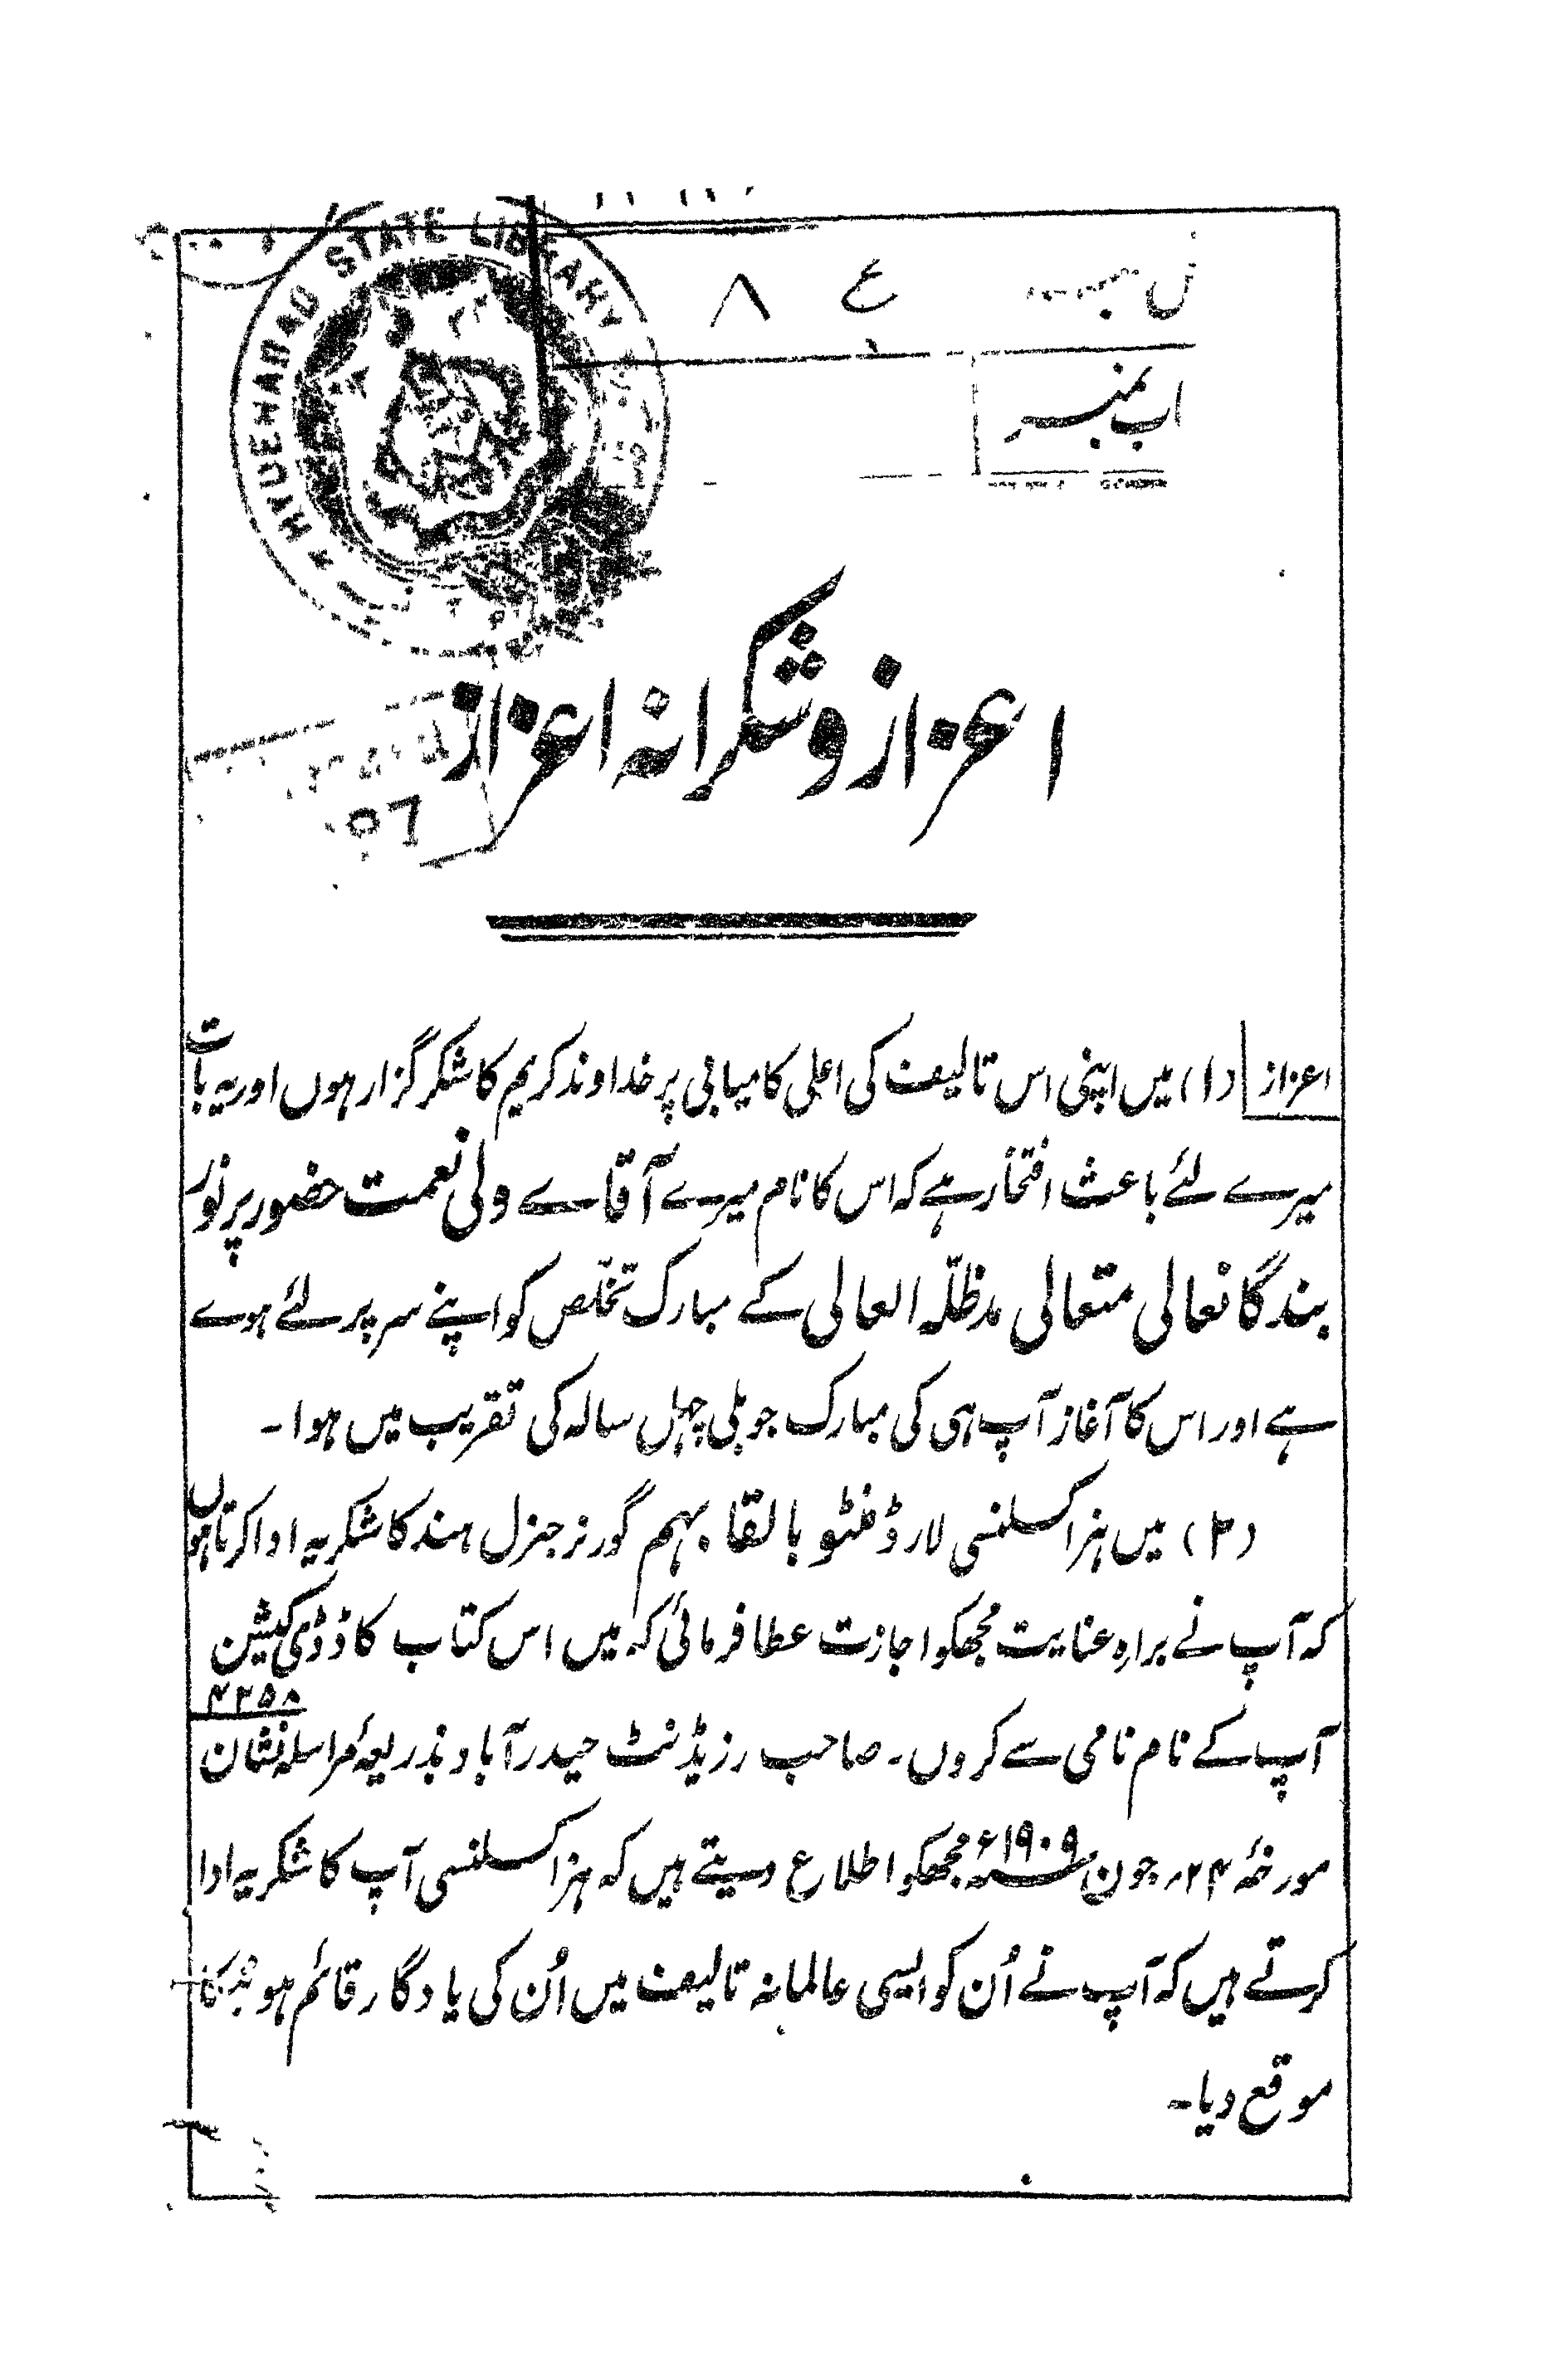 HYDERABAD STATE LIBRARY
ع ۸
اعزاز و شکرانہ اعزاز
اعزاز (۱) میں اپنی اس تالیف کی اعلی کامیابی پر خداوند کریم کا شکر گزار ہوں اور یہ بات
میرے لئے باعث افتخار ہے کہ اس کا نام میرے آقاے ولی نعمت حضور پرنور
بندگانعالی متعالی مدظلّہ العالی کے مبارک تخلّص کو اپنے سر پر لئے ہوے
ہے اور اس کا آغاز آپ ہی کی مبارک جوبلی چہل سالہ کی تقریب میں ہوا۔
(۲) میں ہز اکسلنسی لارڈ منٹو بالقابہم گورنر جنرل ہند کا شکریہ ادا کرتا ہوں
کہ آپ نے براہِ عنایت مجھکو اجازت عطا فرمائی کہ میں اس کتاب کا ڈڈی کیشن
آپ کے نام نامی سے کروں۔ صاحب رزیڈنٹ حیدرآباد بذریعۂ مراسلہ نشان ۴۲۵۸
مورخۂ ۲۴؍ جون سنہ ۱۹۰۹ء مجھکو اطلاع دیتے ہیں کہ ہز اکسلنسی آپ کا شکریہ ادا
کرتے ہیں کہ آپ نے اُن کو ایسی عالمانہ تالیف میں اُن کی یادگار قائم ہونے کا
موقع دیا۔